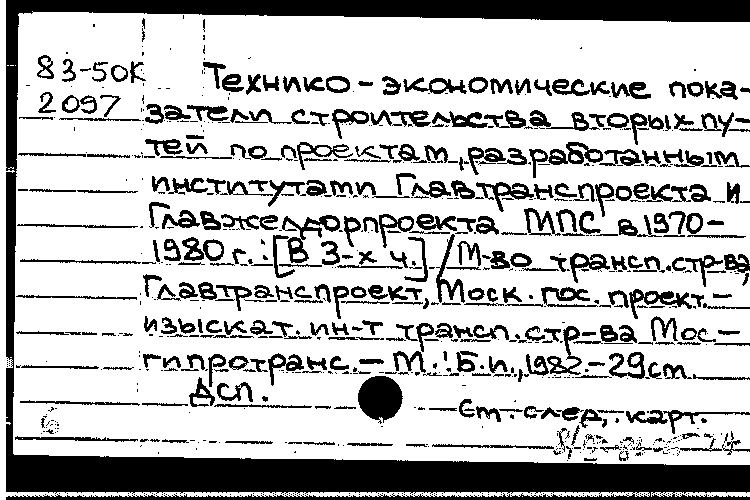 83-50К
2097
Технико-экономические пока-
затели строительства вторых пу-
тей по проектам, разработанным
институтами Главтранспроекта и
Главжелдорпроекта МПС в 1970-
1980 г.: [В 3-х ч.] / М-во трансп. стр-ва,
Главтранспроект, Моск. гос. проект.-
изыскат. ин-т трансп. стр-ва Мос-
гипротранс. - М.: Б.и., 1982. - 29 см.
Дсп.
См. след. карт.
6